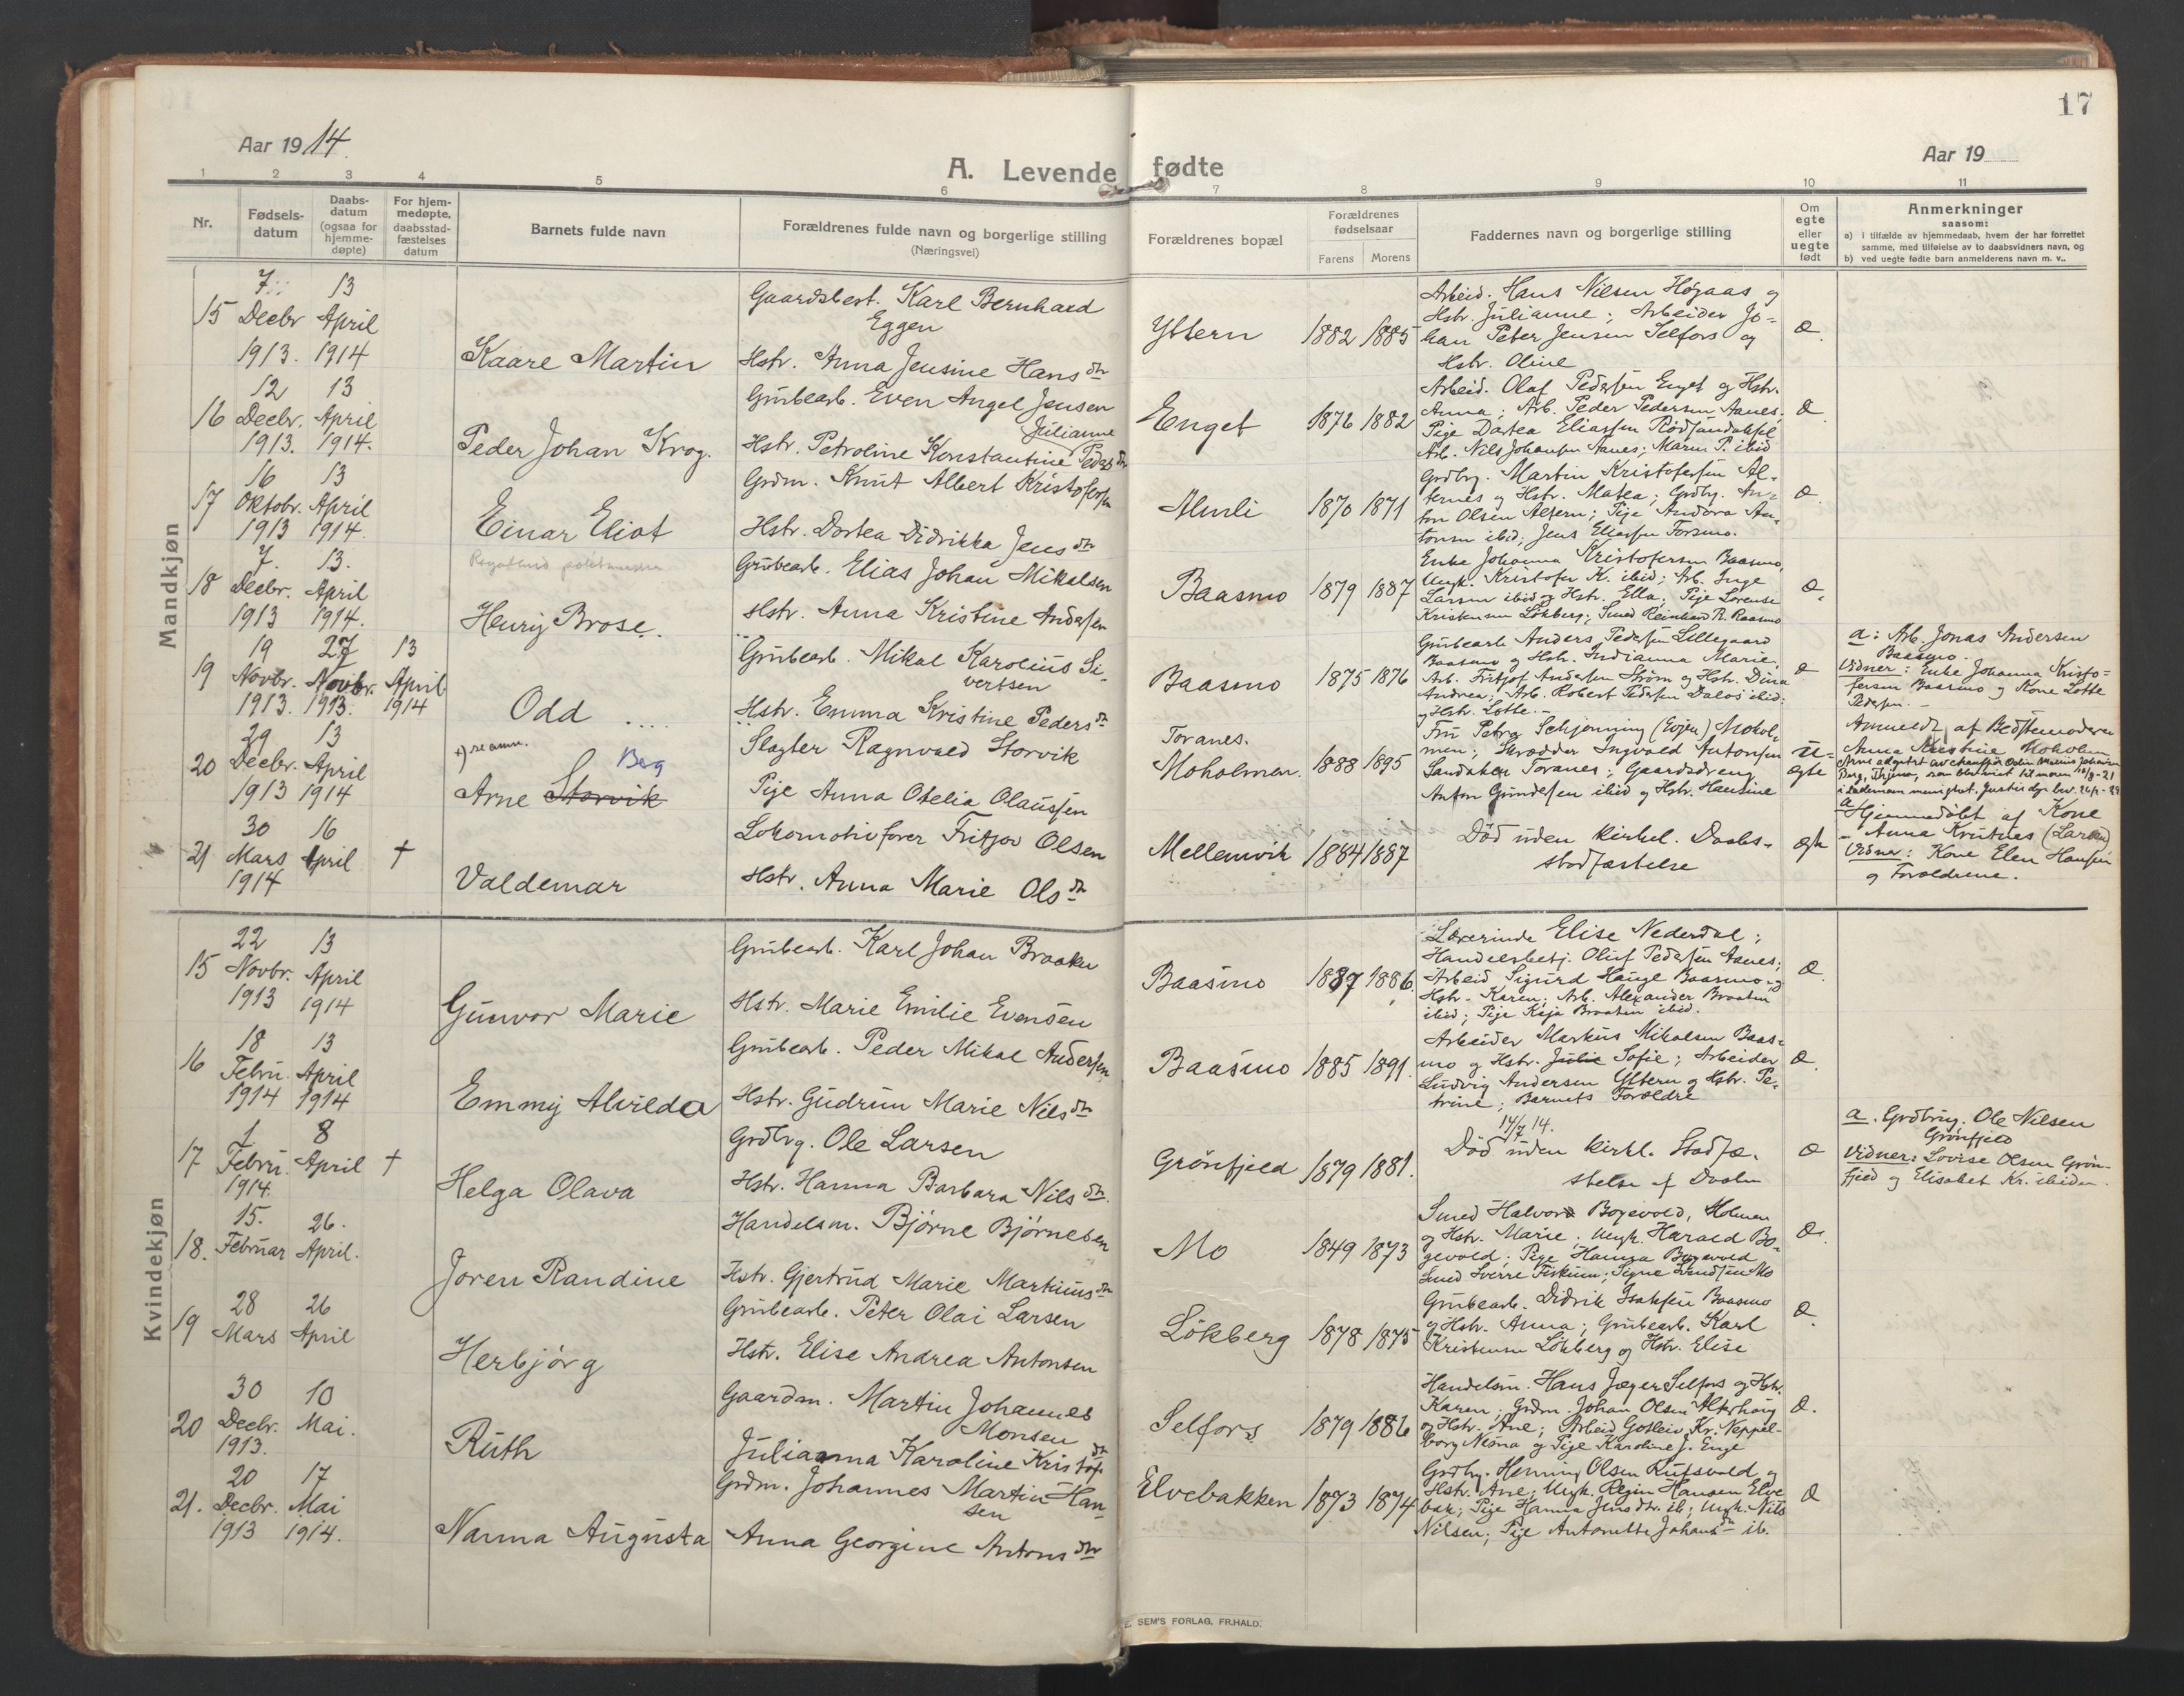 17
Aar 1914.
A. Levende fødte
Aar 19
1 2 3 4 5 6 7 8 9 10 11
Nr.
Fødsels-
datum
Daabs-
datum
(ogsaa for
hjemme-
døpte)
For hjem-
medøpte,
daabsstad-
fæstelses
datum
Barnets fulde navn
Forældrenes fulde navn og borgerlige stilling
(Næringsvei)
Forældrenes bopæl
Forældrenes
fødselsaar
Farens Morens
Faddernes navn og borgerlige stilling
Om
egte
eller
uegte
født
Anmerkninger
saasom:
a) i tilfælde av hjemmedaab, hvem der har forrettet
samme, med tilføielse av to daabsvidners navn, og
b) ved uegte fødte barn anmelderens navn m. v..
Mandkjøn
15
7
Decbr
1913.
13
April
1914
Kaare Martin
Gaardsbest. Karl Bernhard
Eggen
Hstr. Anna Jensine Hansdtr
Yttern
1882 1885
Arbeid. Hans Nilsen Högaas og
Hstr. Julianne; Arbeider Jo-
han Peter Jensen Selfors og
Hstr. Oline
Æ.
16
12
Decbr.
1913.
13
April
1914.
Peder Johan Krog.
Grubearb. Even Angel Jensen
Julianne
Hstr. Petroline Konstantine Pedersdtr
Enget
1876 1882
Arbeid. Olaf Pedersen Enget og Hstr.
Anna; Arb. Peder Pedersen Aanes;
Pige Dortea Eliassen
Arb. Nils Johansen Aanes; Maren P. ibid
Æ
17
16
Oktobr.
1913
13
April
1914.
Einar Eliot
Grdm. Knut Albert Kristofersen
Hstr. Dortea Didrikka Jensdtr
Almli
1870 1871
Grdbrg. Martin Kristofersen Al-
ternes og Hstr. Matea; Grdbg. An-
ton Olsen Altern; Pige Andora An-
tonsen ibid; Jens Eliassen Forsmo.
Æ
18
7.
Decbr.
1913
13.
April
1914.
Henry Brose.
Grubearb. Elias Johan Mikalsen
Hstr. Anna Kristine Andersen
Baasmo
1879 1887
Enke Johanna Kristofersen Baasmo,
Ungk. Kristofer K. ibid; Arb. Inge
Larsen ibid og Hstr. Ella; Pige Lorense
Kristensen Lökberg; Smed Reinhard R. Baasmo
Æ.
19
19
Novbr.
1913.
27
Novbr.
1913.
13
April
1914
Odd ....
Grubearb. Mikal Karolius Si-
vertsen
Hstr. Emma Kristine Pedersdtr
Baasmo
1875 1876
Grubearb Anders Pedersen Lillegaard
Baasmo og Hstr. Indianna Marie,
Arb. Fritjof Andersen Ström og Hstr. Dina
Andrea; Arb. Robert Pedersen Dalos ibid.
og Hstr. Lotte. -
Æ
a: Arb. Jonas Andersen
Baasmo.
Vidner: Enke Johanna Kristo-
fersen Baasmo og Kone Lotte
Pedersen. -
20
29
Decbr.
1913
13
April
1914
x) se anm.
Arne Storvik
Berg
Slagter Ragnvald Storvik
Pige Anna Otelia Olaussen
Toranes.
Moholmen.
1888 1895
Fru Petra Schjonning (Evjen) Mohol-
men; Skrædder Ingvald Antonsen
Sandaker Toranes; Gaardsdreng
Anton Gundersen ibid og Hstr. Hansine
U-
egte
Anmeldt af Bedstemoderen
Anna Kristine Moholmen
Arne adoptert av chauffør Odin Marius Johansen
Berg,
21
30
Mars
1914
16
April
†
Valdemar
Lokomotivfører Fritjov Olsen
Hstr. Anna Marie Olsdtr
Mellemvik
1884 1887
Död uden kirkel. Daabs-
stadfæstelse
egte
a Hjemmedöbt af Kone
Anna Krutnes (Larsen)
Vidner: Kone Elen Hansen
og Forældrene.
Kvindekjøn
15
22
Novbr.
1913
13
April
1914
Gunvor Marie
Grubearb. Karl Johan Braaten
Hstr. Marie Emilie Evensen
Baasmo
1887 1886.
Lærerinde Elise Nederdal;
Handelsbetj. Oluf Pedersen Aanes;
Arbeid Sigurd Hauge Baasmo og
Hstr. Karen; Arb. Alexander Braaten
ibid; Pige Kaja Braaten ibid.
Æ
16
18
Febru.
1914
13
April
1914
Emmy Alvilda
Grubearb. Peder Mikal Andersen
Hstr. Gudrun Marie Nilsdtr
Baasmo
1885 1891.
Arbeider Markus Mikalsen Baas-
mo og Hstr. Julie Sofie; Arbeider
Ludvig Andersen Yttern og Hstr. Pe-
trine; Barnets Forældre
Æ.
17
1
Febru.
1914.
8
April
†
Helga Olava
Grdbrg. Ole Larsen
Hstr. Hanna Barbara Nilsdtr.
Grönfjeld
1879 1881.
14/7 14.
Död uden kirkl. Stadfæ-
stelse af Daaben
Æ
a. Grdbrug. Ole Nilsen
Grönfjeld
Vidner: Lovise Olsen Grön-
fjeld og Elisabet Kr. ibiden.
18.
15.
Februar
26.
April.
Joren Randine
Handelsm. Bjørne Bjørnesen
Hstr. Gjertrud Marie Martinusdtr
Mo
1849 1873
Smed Halvor Bogevold, Holmen
og Hstr. Marie; Ungk. Harald Bo-
gevold; Pige Hanna Bogevold
Smed Sverre Fiskum; Signe Svendsen Mo
Æ.
19
28
Mars
26
April
Herbjörg
Grubearb. Peter Olai Larsen
Hstr. Elise Andrea Antonsen
Lökberg
1878 1875
Grubearb. Didrik Isaksen Baasmo
og Hstr. Anna; Grubearb. Karl
Kristensen Lökberg og Hstr. Elise
Æ.
20
30
Decbr.
1913.
10
Mai.
Ruth
Gaardm. Martin Johannes
Monsen
Julianna Karoline Kristofdtr
Selfors
1879 1886
Handelsm. Hans Jæger Selfors og Hstr.
Karen; Grdm. Johan Olsen Alterhaug
og Hstr. Ane; Arbeid Gotleiv Kr. Neppel-
borg Nesna og Pige Karoline J. Enge
Æ.
21.
20
Decbr.
1913
17
Mai
1914.
Nanna Augusta
Grdm. Johannes Martin Han-
sen
Anna Georgine Antonsdtr
Elvebakken
1873 1874
Grdbrg. Henning Olsen Rufsvold og
Hstr. Ane; Ungk. Regin Hansen Elve
bak; Pige Hanna Jensdtr. ib; Ungk. Nils
Nilsen; Pige Antonette Johansdtr ib.
Æ
E. SEM'S FORLAG, FR.HALD.